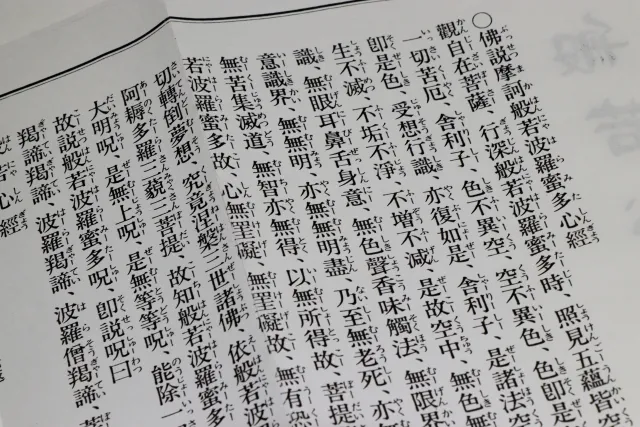 ○佛説摩訶般若波羅蜜多心經
觀自在菩薩、行深般若波羅蜜多時、照見五蘊皆空
一切苦厄、舍利子、色不異空、空不異色、色即是
即是色、受想行識、亦復如是、舍利子、是諸法空
生不滅、不垢不淨、不增不減、是故空中、無色無
識、無眼耳鼻舌身意、無色聲香味觸法、無限界
意識界、無無明、亦無無明盡、乃至無老死、亦無
無苦集滅道、無智亦無得、以無所得故、菩提
若波羅蜜多故、心無罣礙、無罣礙故、無有恐
切轉倒夢想、究竟涅槃、三世諸佛、依般若波
阿耨多羅三藐三菩提、故知般若波羅蜜多
大明呪、是無上呪、是無等等呪、能除一
故説般若波羅蜜多呪、即説呪曰
羯諦羯諦、波羅羯諦、波羅僧羯諦、菩
若心經